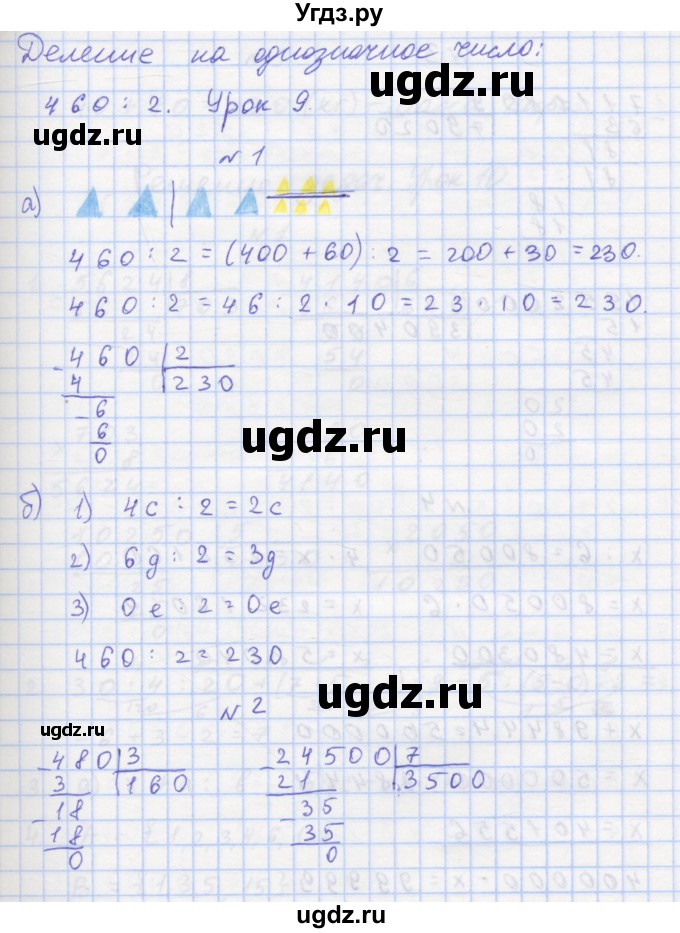 Угдз.ру
Деление на однозначное число:
460 : 2. Урок 9.
ugdz.ru
ugdz.ru
№ 1
а)
460 : 2 = (400 + 60) : 2 = 200 + 30 = 230.
460 : 2 = 46 : 2 · 10 = 23 · 10 = 230.
- 460 | 2
4 230
- 6
6
0
ugdz.ru
б) 1) 4с : 2 = 2с
2) 6д : 2 = 3д
3) 0е : 2 = 0е
460 : 2 = 230
ugdz.ru
№ 2
ugdz.ru
- 480 | 3 - 24500 | 7
3 160 21 3500
- 18 - 35
18 35
0 0
ugdz.ru
ugdz.ru